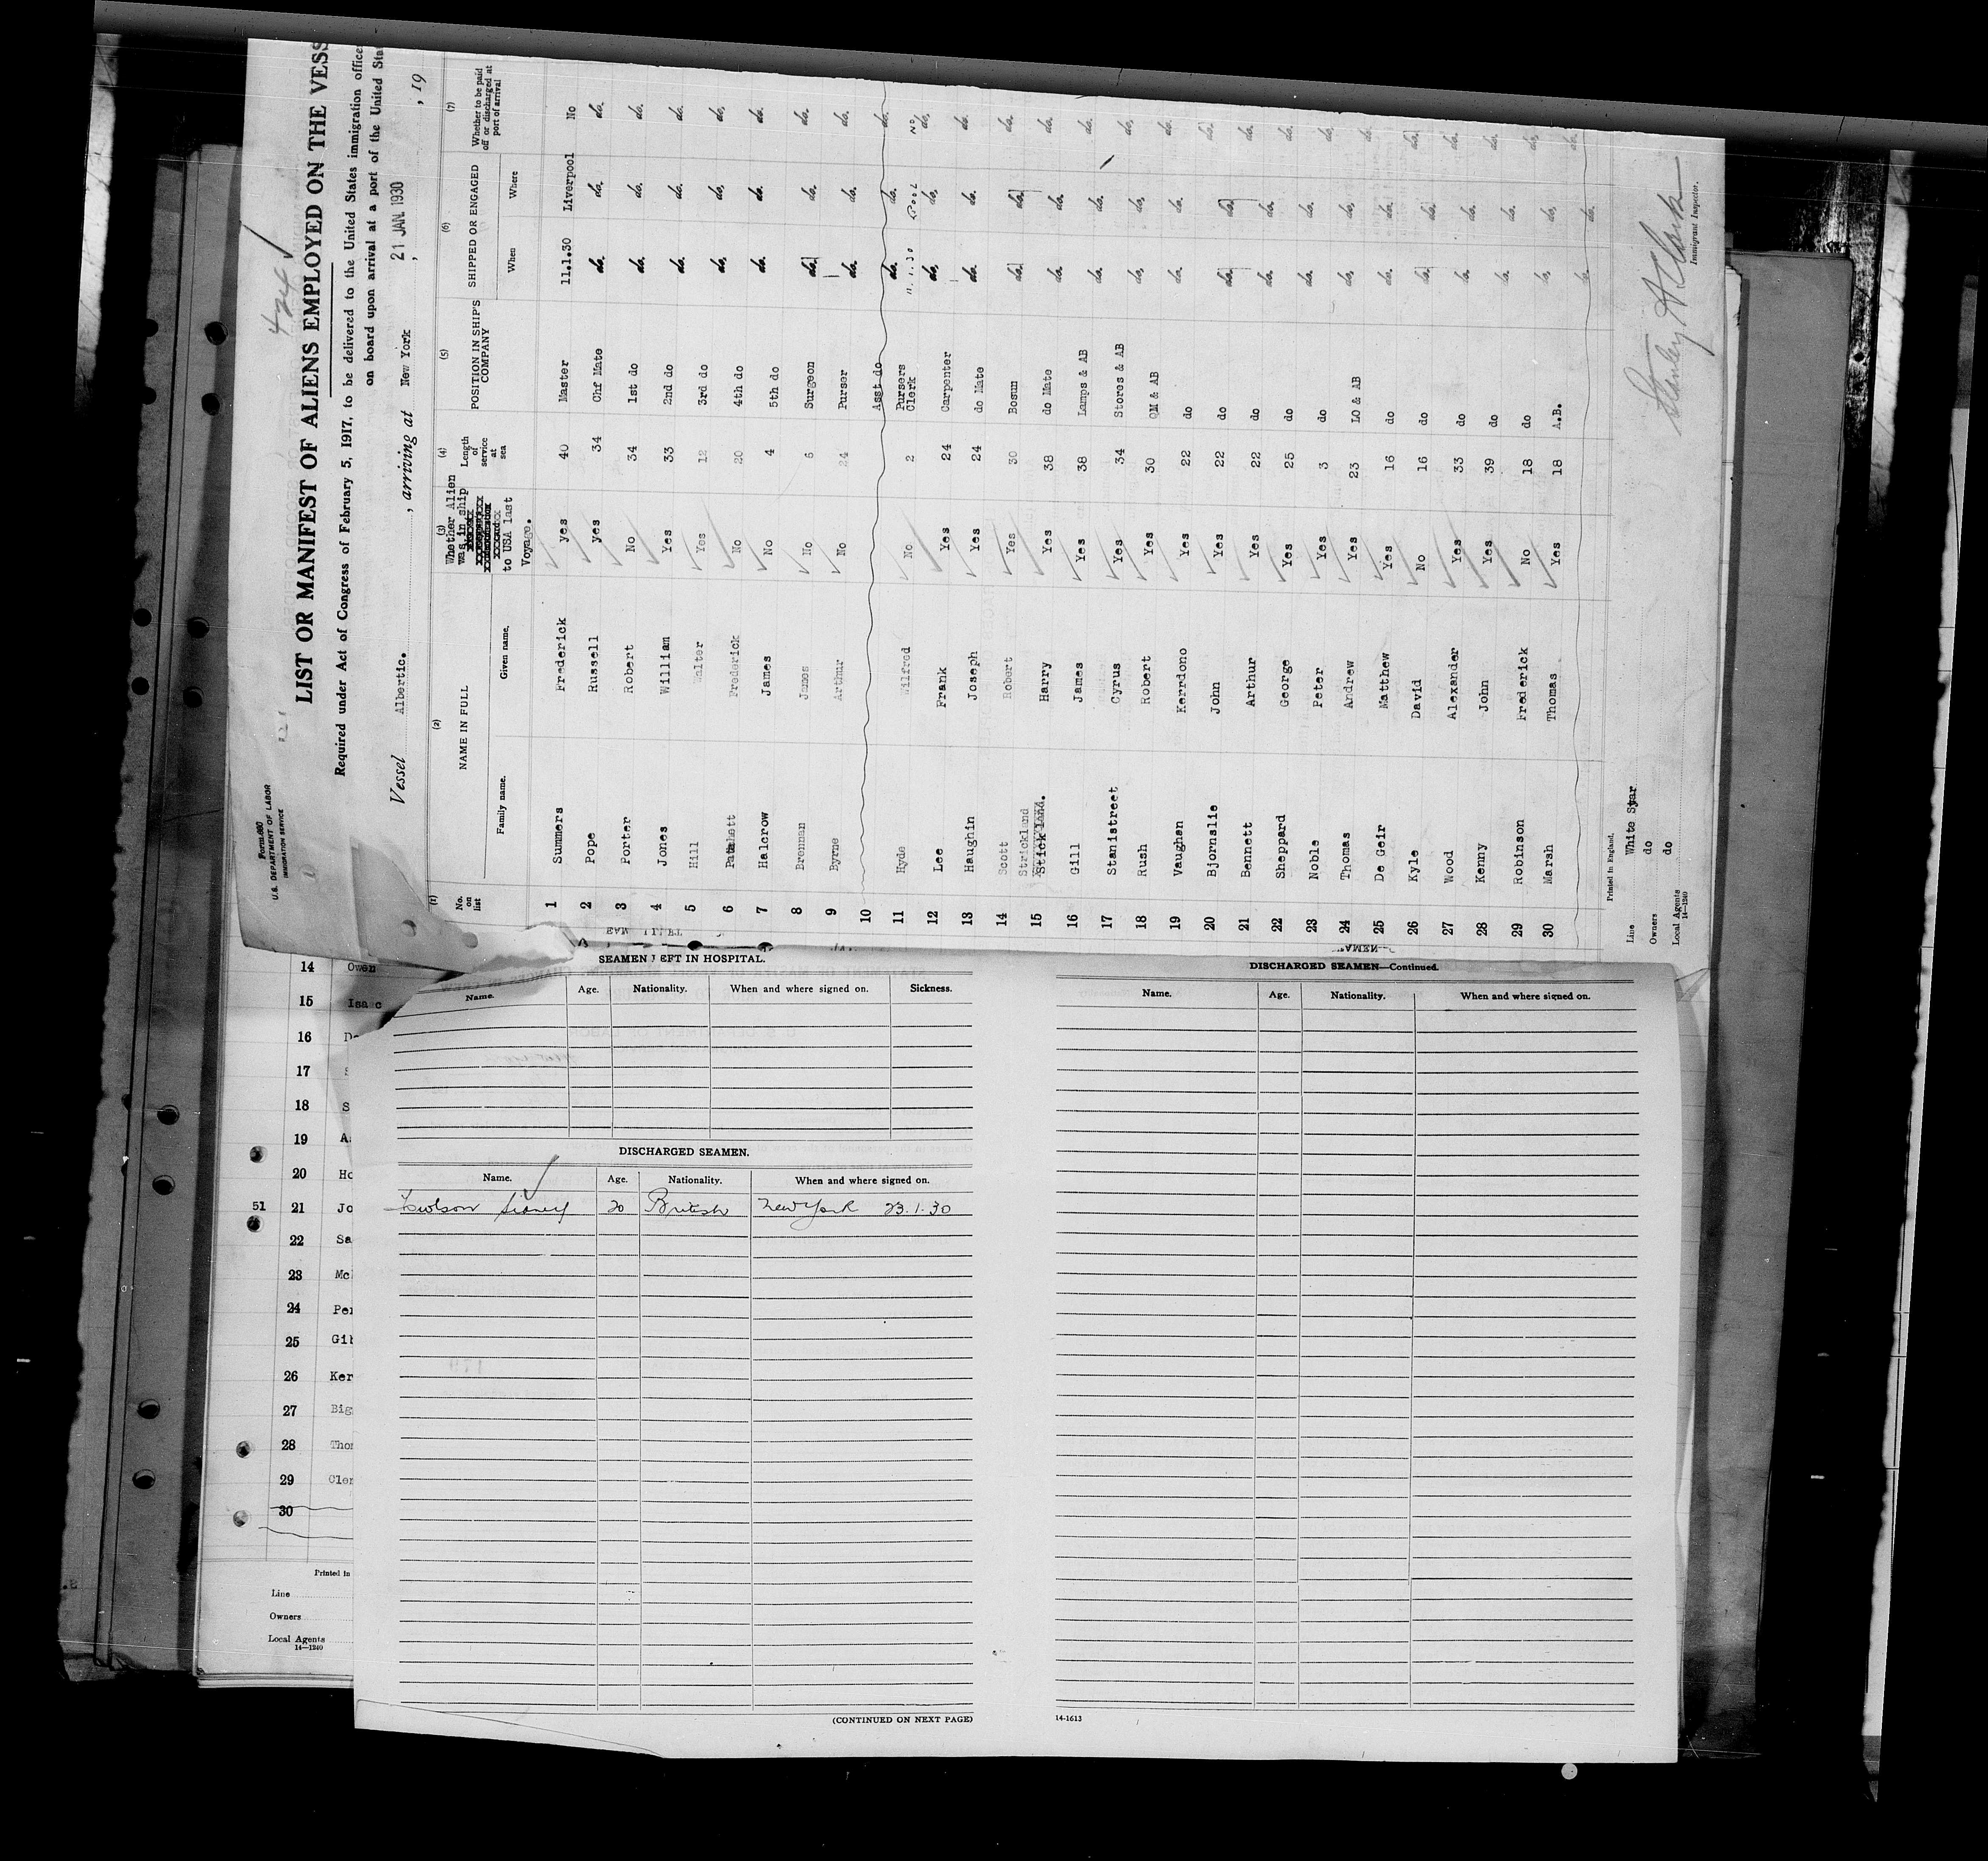 Form 680
U.S. DEPARTMENT OF LABOR
IMMIGRATION SERVICE
424
LIST OR MANIFEST OF ALIENS EMPLOYED ON THE VESS
Required under Act of Congress of February 5, 1917, to be delivered to the United States immigration office
on board upon arrival at a port of the United Sta
Vessel Albertic. , arriving at New York , 21 JAN. 1930 , 19
(1) (2) (3) (4) (5) (6) (7)
No. on list NAME IN FULL Family name. Given name. Whether Alien was in ship to USA last Voyage. Length of service at sea POSITION IN SHIP'S COMPANY SHIPPED OR ENGAGED When Where Whether to be paid off or discharged at port of arrival
1 Summers Frederick yes 40 Master 11.1.30 Liverpool No
2 Pope Russell yes 34 Chf Mate do. do. do.
3 Porter Robert No 34 1st do do. do. do.
4 Jones William Yes 33 2nd do do. do. do.
5 Hill Walter Yes 12 3rd do do. do. do.
6 Frederick No 20 4th do do. do. do.
7 Halcrow James No 4 5th do do. do. do.
8 Brennan James No 6 Surgeon do. do. do.
9 Byrne Arthur No 24 Purser do. do. do.
10 Asst do do. do. do.
11 Hyde Wilfred No 2 Pursers Clerk 11.1.30 Lpool No
12 Lee Frank Yes 24 Carpenter do. do. do.
13 Haughin Joseph Yes 24 do Mate do. do. do.
14 Scott Robert Yes 30 Bosun do. do. do.
Strickland
15 Stick land. Harry Yes 38 do Mate do. do. do.
16 Gill James Yes 38 Lamps & AB do. do. do.
17 Stanistreet Cyrus Yes 34 Stores & AB do. do. do.
18 Rush Robert Yes 30 QM & AB do. do. do.
19 Vaughan Kerrdono Yes 22 do do. do. do.
20 Bjornslie John Yes 22 do do. do. do.
21 Bennett Arthur Yes 22 do do. do. do.
22 Sheppard George Yes 25 do do. do. do.
23 Noble Peter Yes 3 do do. do. do.
24 Thomas Andrew Yes 23 LO & AB do. do. do.
25 De Geir Matthew Yes 16 do do. do. do.
26 Kyle David No 16 do do. do. do.
27 Wood Alexander Yes 33 do do. do. do.
28 Kenny John Yes 39 do do. do. do.
29 Robinson Frederick No 18 do do. do. do.
30 Marsh Thomas Yes 18 A.B. do. do. do.
Printed in England.
Line White Star
Owners do
Local Agents do
14—1240
Stanley A Clark
Immigrant Inspector.
14 Owen
15 Isaac
16
17
18 S
19 A
20 Ho
51 21 Jo
22 Sa
23 Mc
24 Per
25 Gil
26 Ker
27 Big
28 Thor
29 Cler
30
Printed in
Line
Owners
Local Agents
14—1240
SEAMEN LEFT IN HOSPITAL.
Name. Age. Nationality. When and where signed on. Sickness.
DISCHARGED SEAMEN.
Name. Age. Nationality. When and where signed on.
Sidney 20 British New York 23.1.30
(CONTINUED ON NEXT PAGE)
DISCHARGED SEAMEN—Continued.
Name. Age. Nationality. When and where signed on.
14-1613